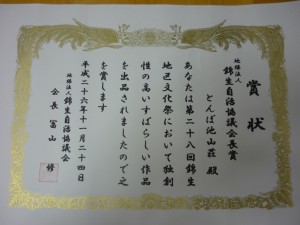 賞状
地縁法人
錦生自治協議会長賞
とんぼ池山荘 殿
あなたは第二八回錦生
地区文化祭において独創
性の高いすばらしい作品
を出品されましたので之
を賞します
平成二十六年十一月二十四日
地縁法人
錦生自治協議会
会長 冨山 修